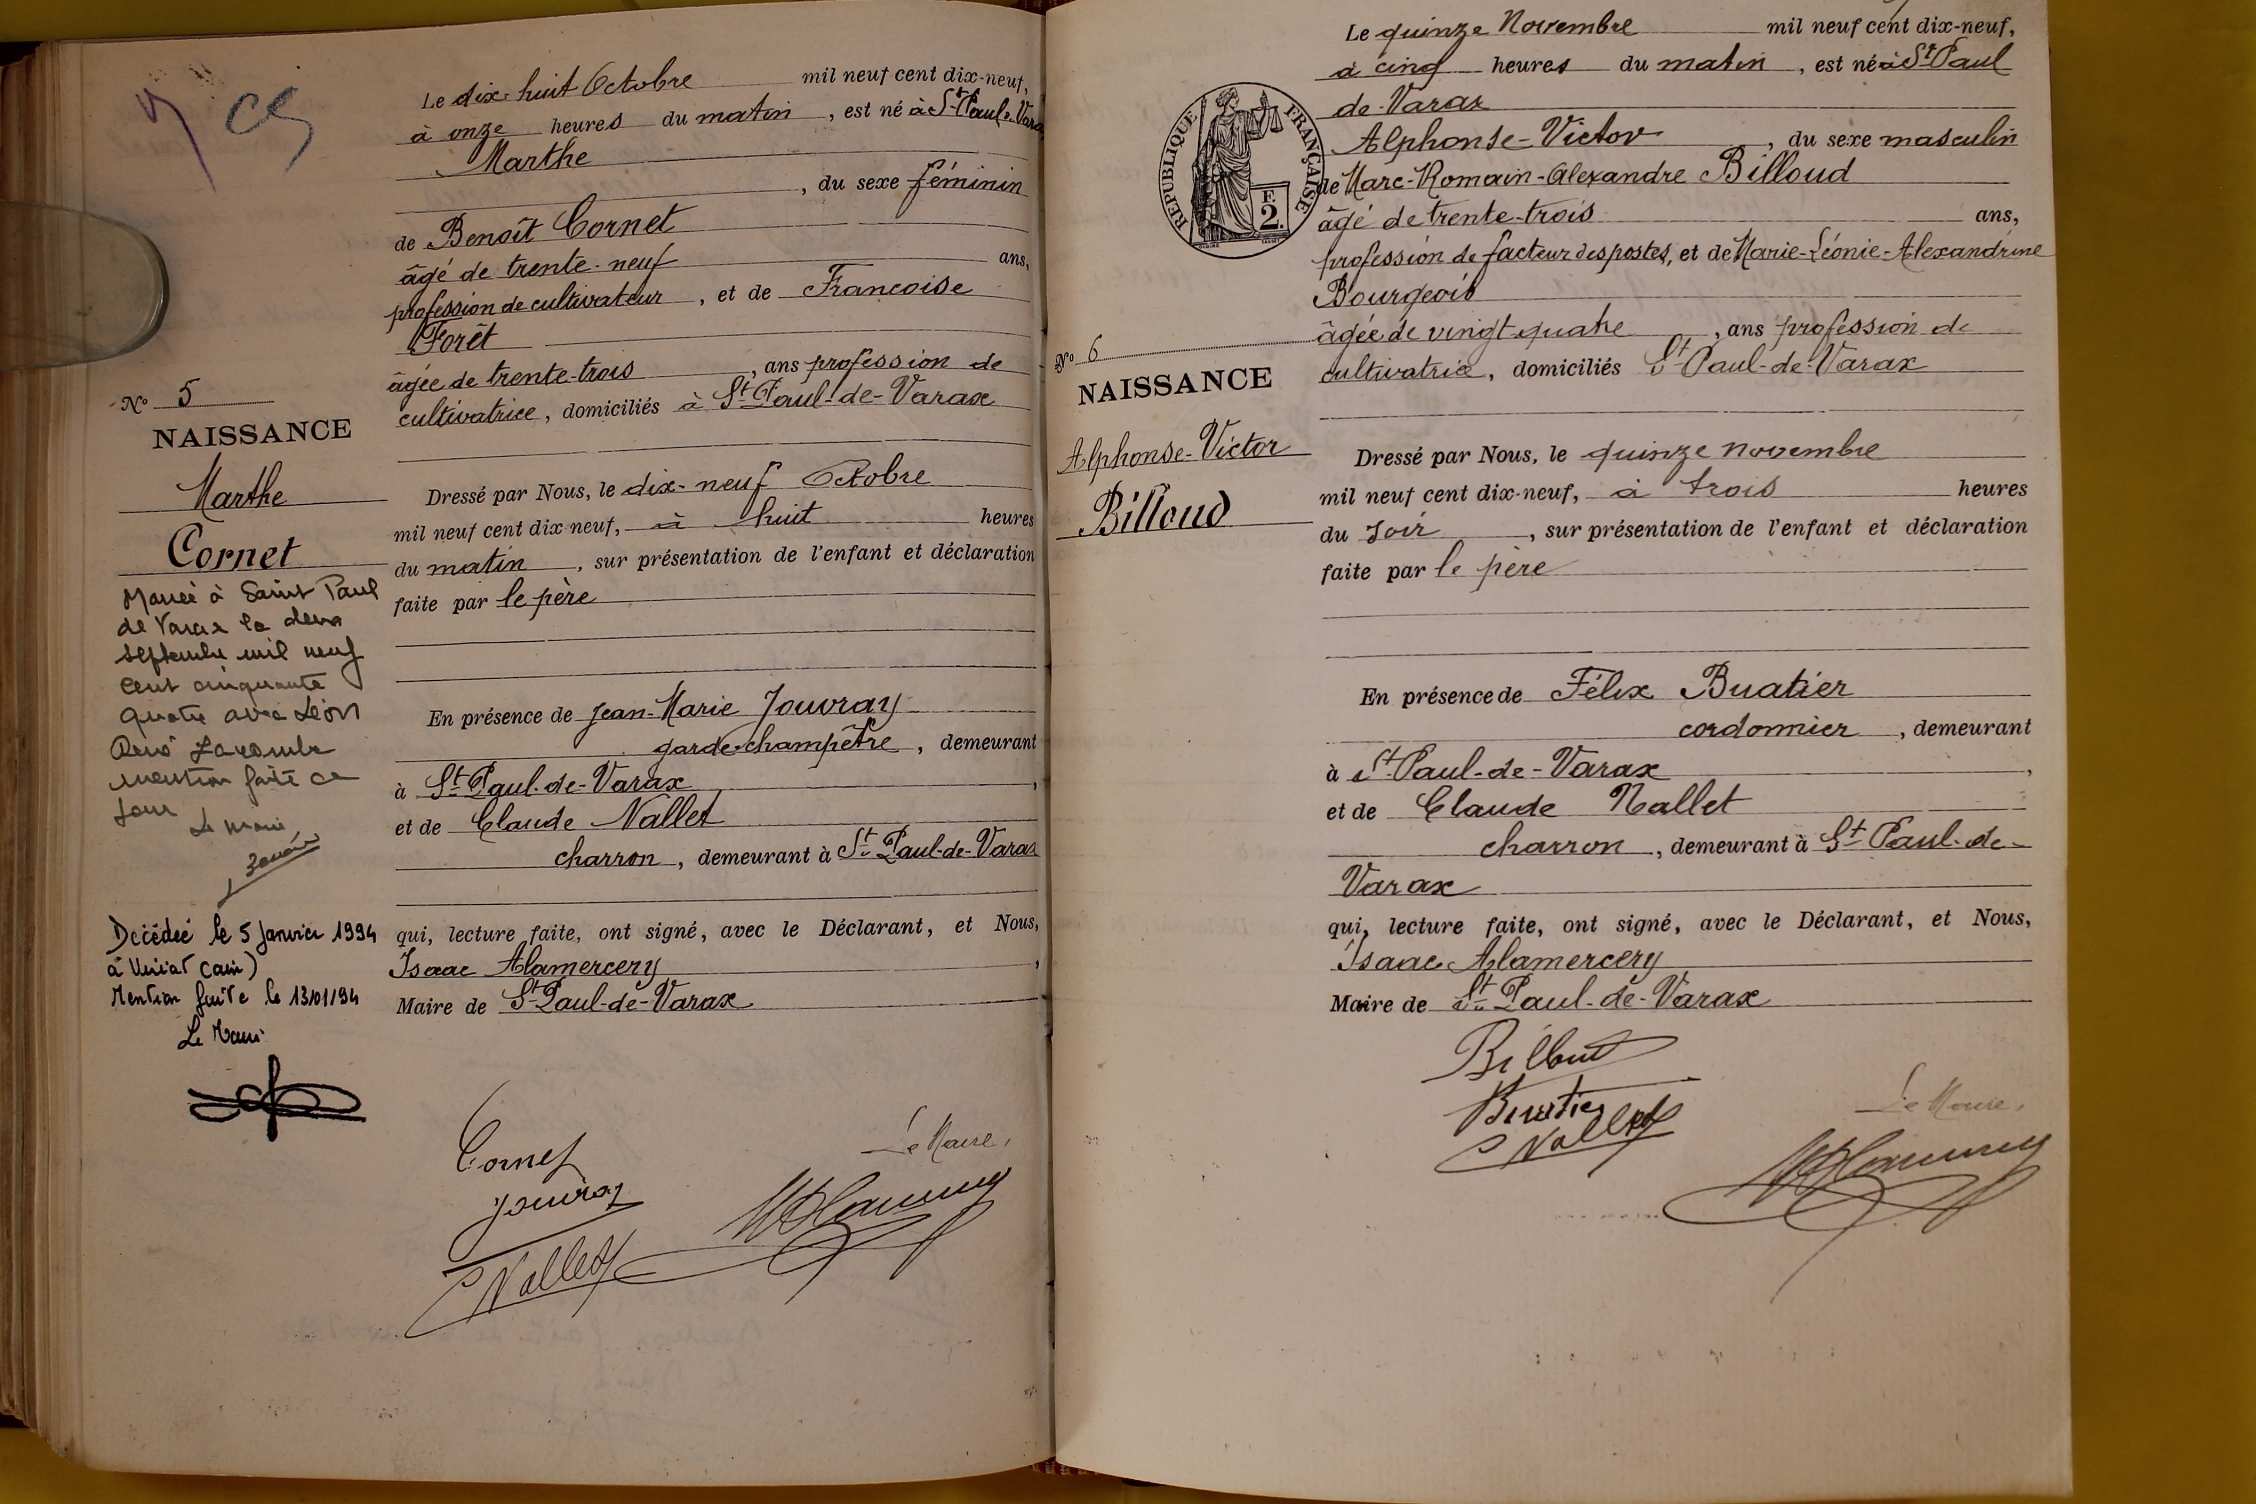 Le dix-huit Octobre mil neuf cent dix-neuf,
à onze heures du matin, est né à St Paul-de-Varax
Marthe
, du sexe féminin
de Benoît Cornet
âgé de trente-neuf ans,
profession de cultivateur, et de Françoise
Forêt
âgée de trente-trois, ans profession de
cultivatrice, domiciliés à St Paul-de-Varax
N° 5
NAISSANCE
Marthe
Cornet
Mariée à Saint Paul
de Varax le deux
septembre mil neuf
cent cinquante
quatre avec Léon
René Lacombe
mention faite ce
jour
Le maire
Décédée le 5 Janvier 1994
à Viriat (Ain)
Mention faite le 13/01/94
Le Maire
Dressé par Nous, le dix-neuf Octobre
mil neuf cent dix neuf, à huit heures
du matin, sur présentation de l'enfant et déclaration
faite par le père
En présence de Jean-Marie Jouvray
garde-champêtre, demeurant
à St Paul-de-Varax,
et de Claude Nallet
charron, demeurant à St Paul-de-Varax
qui, lecture faite, ont signé, avec le Déclarant, et Nous,
Isaac Alamercery,
Maire de St Paul-de-Varax
Cornet
Jouvray
C Nallet
Le Maire,
Le quinze Novembre mil neuf cent dix-neuf,
à cinq heures du matin, est né à St Paul
de-Varax
Alphonse-Victor, du sexe masculin
de Marc-Romain-Alexandre Billoud
âgé de trente-trois ans,
profession de facteur des postes, et de Marie-Léonie-Alexandrine
Bourgeois
âgée de vingt quatre, ans profession de
cultivatrice, domiciliés St Paul-de-Varax
RÉPUBLIQUE FRANÇAISE
E
2.
N° 6
NAISSANCE
Alphonse-Victor
Billoud
Dressé par Nous, le quinze novembre
mil neuf cent dix-neuf, à trois heures
du soir, sur présentation de l'enfant et déclaration
faite par le père
En présence de Félix Buatier
cordonnier, demeurant
à St Paul-de-Varax,
et de Claude Nallet
charron, demeurant à St Paul-de-
Varax
qui, lecture faite, ont signé, avec le Déclarant, et Nous,
Isaac Alamercery
Maire de St Paul-de-Varax
Billoud
Buatier
C Nallet
Le Maire,